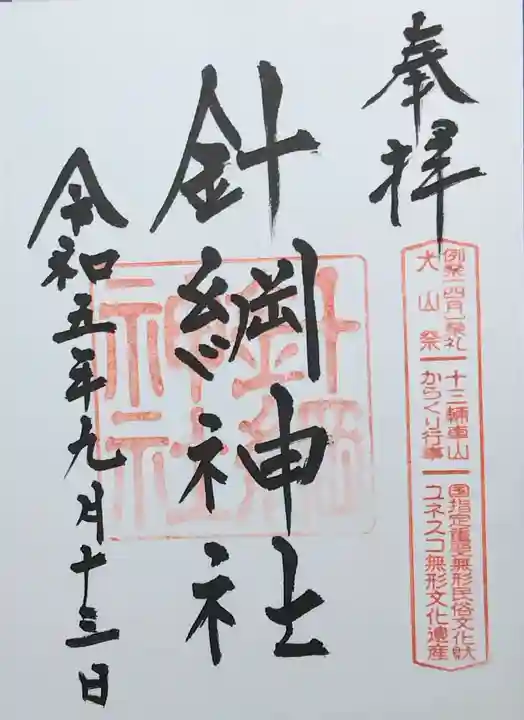 奉拝
例祭 四月 祭礼
犬山祭
十三輌車山
からくり行事
国指定重要無形民俗文化財
ユネスコ無形文化遺産
針綱神社
針綱
神社
令和五年九月十三日